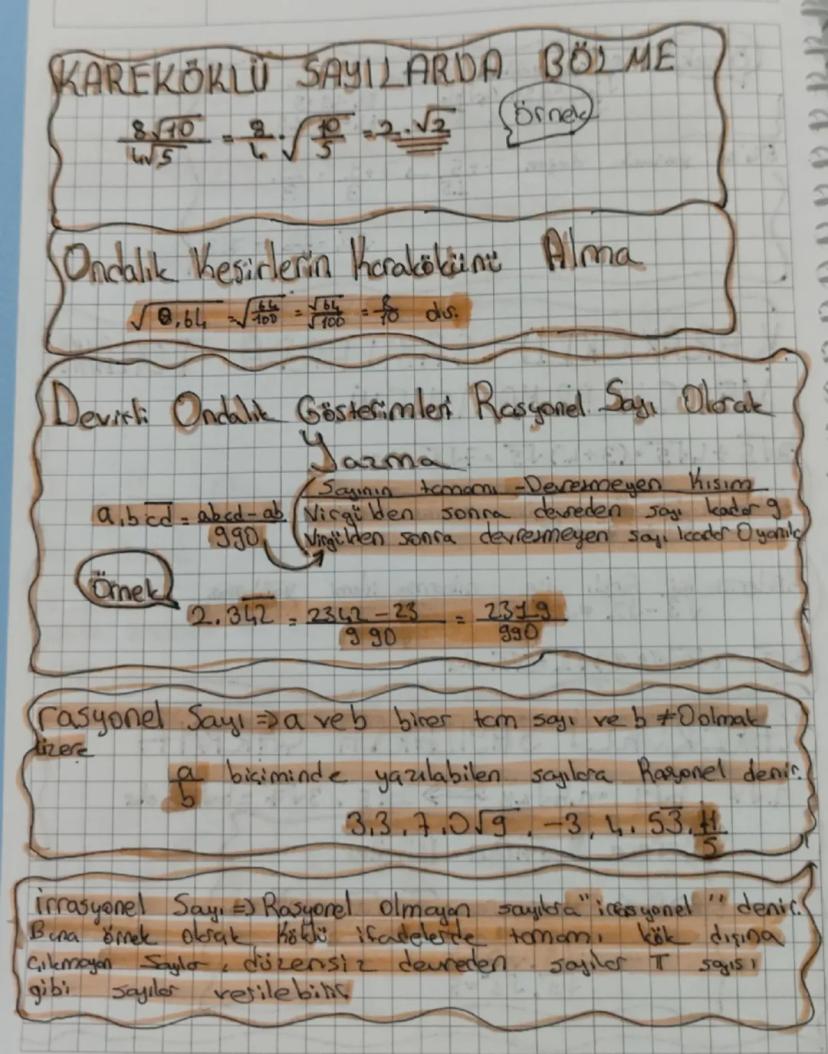 KAREKÖKLÜ SAYILARDA BÖLME
8√10 / 4√5 = 8/4 · √10/5 = 2.√2 Örnek
Ondalık Kesirlerin Karakökünü Alma
√0,64 = √64/100 = √64/√100 = 8/10 dır.
Devirli Ondalık Gösterimleri Rasyonel Sayı Olarak
Yazma
Sayının tamamı - Devretmeyen Kısım
a,bc̅d̅ = abcd-ab / 990 Virgülden sonra devreden sayı kadar 9
Virgülden sonra devretmeyen sayı kadar 0
Örnek
2.34̅2̅ = 2342-23 / 990 = 2319 / 990
rasyonel Sayı => a ve b birer tam sayı ve b ≠ 0 olmak
üzere
a/b biçiminde yazılabilen sayılara Rasyonel denir.
3,3,7,0√9, -3, 4, 53̅, 11/5
irrasyonel Sayı => Rasyonel olmayan sayılara "irrasyonel" denir.
Buna örnek olarak köklü ifadelerde tamamı kök dışına
Çıkmayan Sayılar, düzensiz devreden sayılar π sayısı
gibi sayılar verilebilir